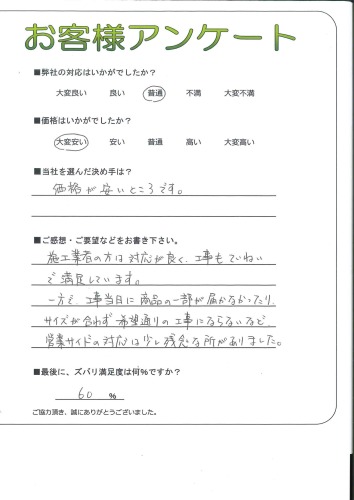 お客様アンケート
■弊社の対応はいかがでしたか？
大変良い 良い 普通 不満 大変不満
■価格はいかがでしたか？
大変安い 安い 普通 高い 大変高い
■当社を選んだ決め手は？
価格が安いところです。
■ご感想・ご要望などをお書き下さい。
施工業者の方は対応が良く、工事もていねい
で満足しています。
一方で、工事当日に商品の一部が届かなかったり、
サイズが合わず希望通りの工事にならないなど、
営業サイドの対応は少し残念な所がありました。
■最後に、ズバリ満足度は何％ですか？
60 ％
ご協力頂き、誠にありがとうございました。